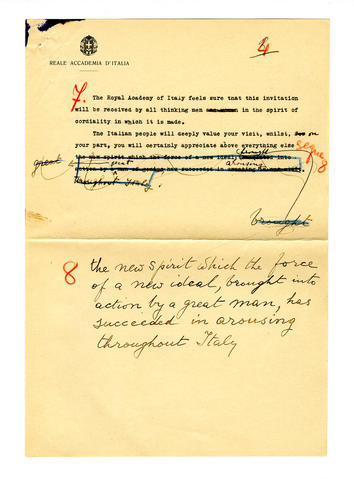 4
REALE ACCADEMIA D'ITALIA
7. The Royal Academy of Italy feels sure that this invitation
will be received by all thinking men in the spirit of
cordiality in which it is made.
The Italian people will deeply value your visit, whilst, on
your part, you will certainly appreciate above everything else
segue 8
brought
the new spirit which the force of a new ideal, into
great
great
arousing
action by a has succeeded in
throughout Italy.
brought
8 the new spirit which the force
of a new ideal, brought into
action by a great man, has
succeeded in arousing
throughout Italy